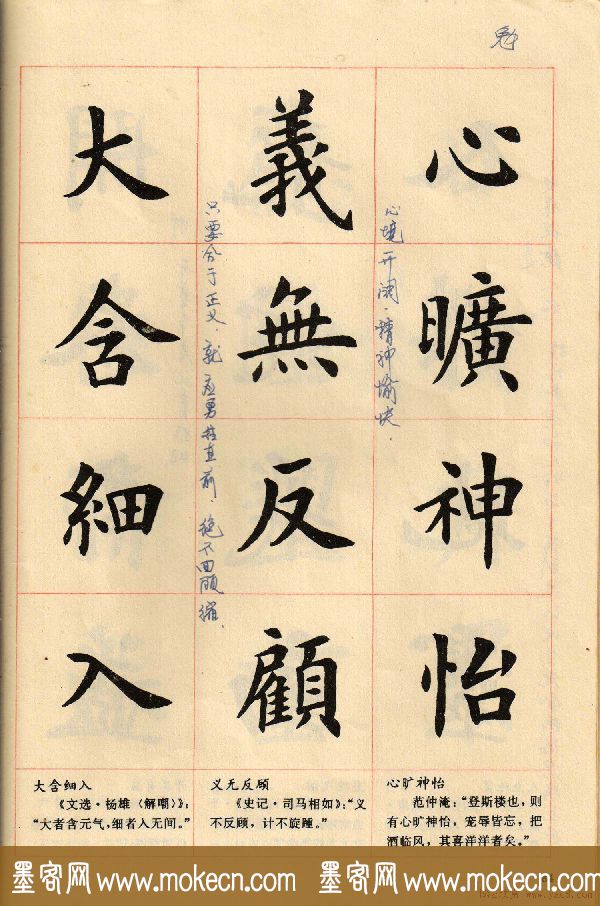 心曠神怡
義無反顧
大含細入
心境开阔，精神愉快．
只要合于正义，就应勇往直前，绝不回顾
心旷神怡
范仲淹：“登斯楼也，则
有心旷神怡，宠辱皆忘，把
酒临风，其喜洋洋者矣。”
义无反顾
《史记·司马相如》：“义
不反顾，计不旋踵。”
大含细入
《文选·杨雄〈解嘲〉》：
“大者含元气，细者入无间。”
墨客网 www.mokecn.com 墨客网 www.mokecn.com